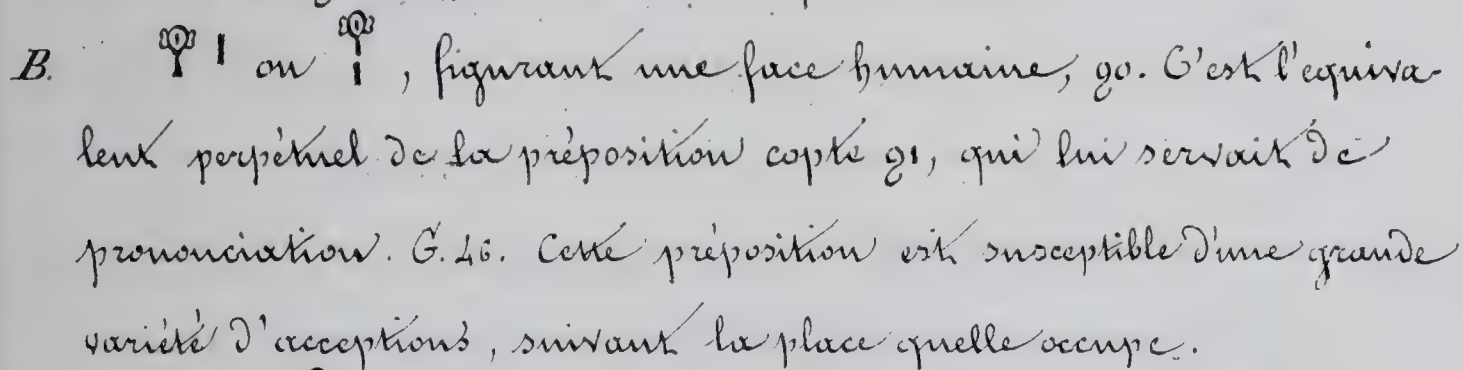 B. 𓁷𓏤 ou 𓁷𓏤, figurant une face humaine, ϩο. C'est l'equiva-
lent perpétuel de la préposition copte ϩι, qui lui servait de
prononciation. G. 46. Cette préposition est susceptible d'une grande
variété d'acceptions, suivant la place quelle occupe.